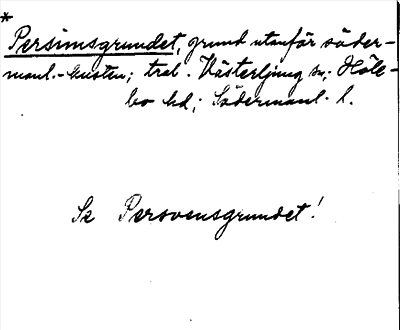 *
Persimsgrundet, grund utanför söder-
manl.-kusten; tral. Västerljung sn; Höle-
bo hd; Södermanl. l.
Se Persvensgrundet!